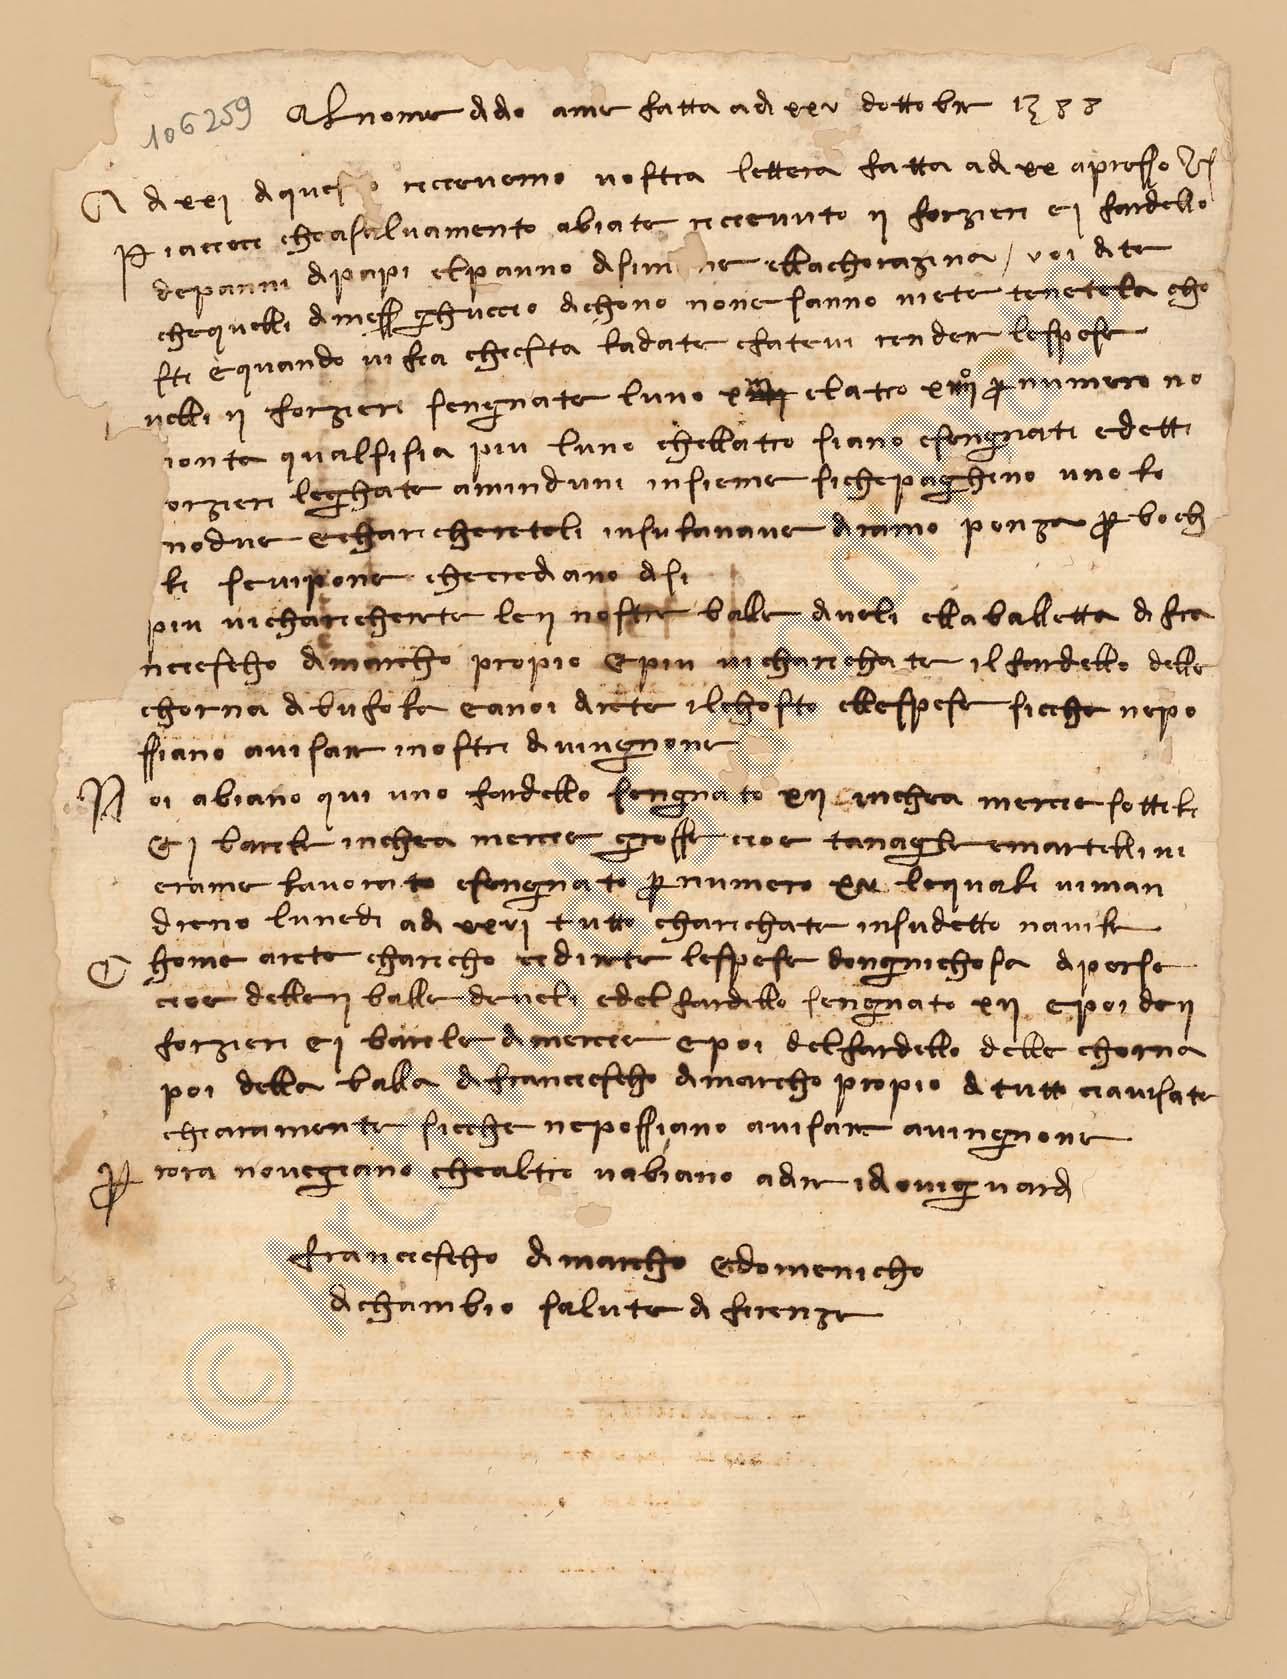 106259
Al nome di dio ame fatta a di xxv dottobre 1388
A di xxi di questo ricevemo vostra lettera fatta a di xx apresso
Piacieci che a salvamento abiate ricevuto ii forzieri e i fardello
de panni di papi el panno di simone ella chorazina / voi dite
che quelli di mess ghuccio dichono none sanno niete tenetela cho
sti e quando vi fia chiesta la date e fatevi rendere le spese
velli ii forzieri sengnate luno e latro per numero no
monta qual si sia piu luno che llatro siano sengnati e detti
orzieri leghate amunduni insieme siche paghino uno lo
no due e charicheretoli in su la nave di ramo ponza per boch
li se vi pone che crediano di si
piu vi charicherete le ii nostre balle di veli e lla balletta di fra
nciescho di marcho propio e piu vi charichate il fardello delle
chorna di bufole e a noi direte il chosto e lle spese sicche ne po
ssiano avisare i nostri di vingnone
Noi abiano qui uno fardello sengnato xii in chea mercie sottile
e i barile in chea mercie grosse cioe tanaglie e martelli vi
e rame lavorato e sengnato per numero lo quali vi man
dieno lunedi a di xxvi tutto charichate in su detto navile
Chome arete charicho ci direte le spese dongni chosa di per se
cioe delle ii balle de veli e del fardello sengnato xii e poi de ii
forzieri e i barile di mercie e poi del fardello delle chorna
poi della balla di franciescho di marcho propio di tutto ci avisate
chiaramente sicche ne possiano avisare a vingnone
Per ora no vegiano che altro vabiano a dire idio vi guardi
franciescho di marcho e domenicho
di chambio salute di firenze
© Archivio di Stato di Prato